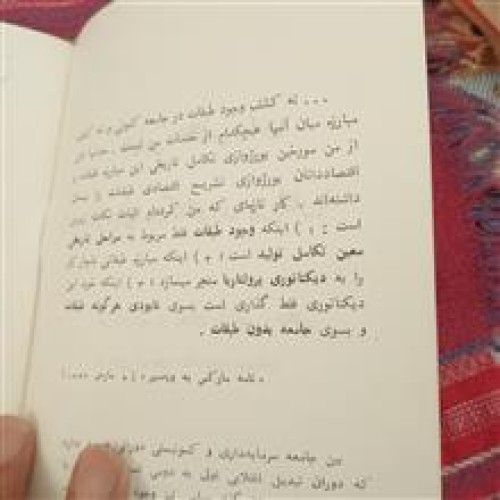 ... نه کشف وجود طبقات در جامعه کنونی و نه کشف
مبارزه میان آنها هیچکدام از خدمات من نیست .
از من مورخین بورژوازی تکامل تاریخی این مبارزه طبقات و
اقتصاددانان بورژوازی تشریح اقتصادی طبقات را بیان
داشته‌اند . کار تازه‌ای که من کرده‌ام اثبات نکات زیرین
است : ۱ ) اینکه وجود طبقات فقط مربوط به مراحل تاریخی
معین تکامل تولید است ؛ ۲ ) اینکه مبارزه طبقاتی ناچار کار
را به دیکتاتوری پرولتاریا منجر میسازد ؛ ۳ ) اینکه خود این
دیکتاتوری فقط گذاری است بسوی نابودی هرگونه طبقات
و بسوی جامعه بدون طبقات .
« نامه مارکس به ویدمیر » ، مارس
بین جامعه سرمایه‌داری و کمونیستی دورانی
که دوران تبدیل انقلابی اولی به دومی است